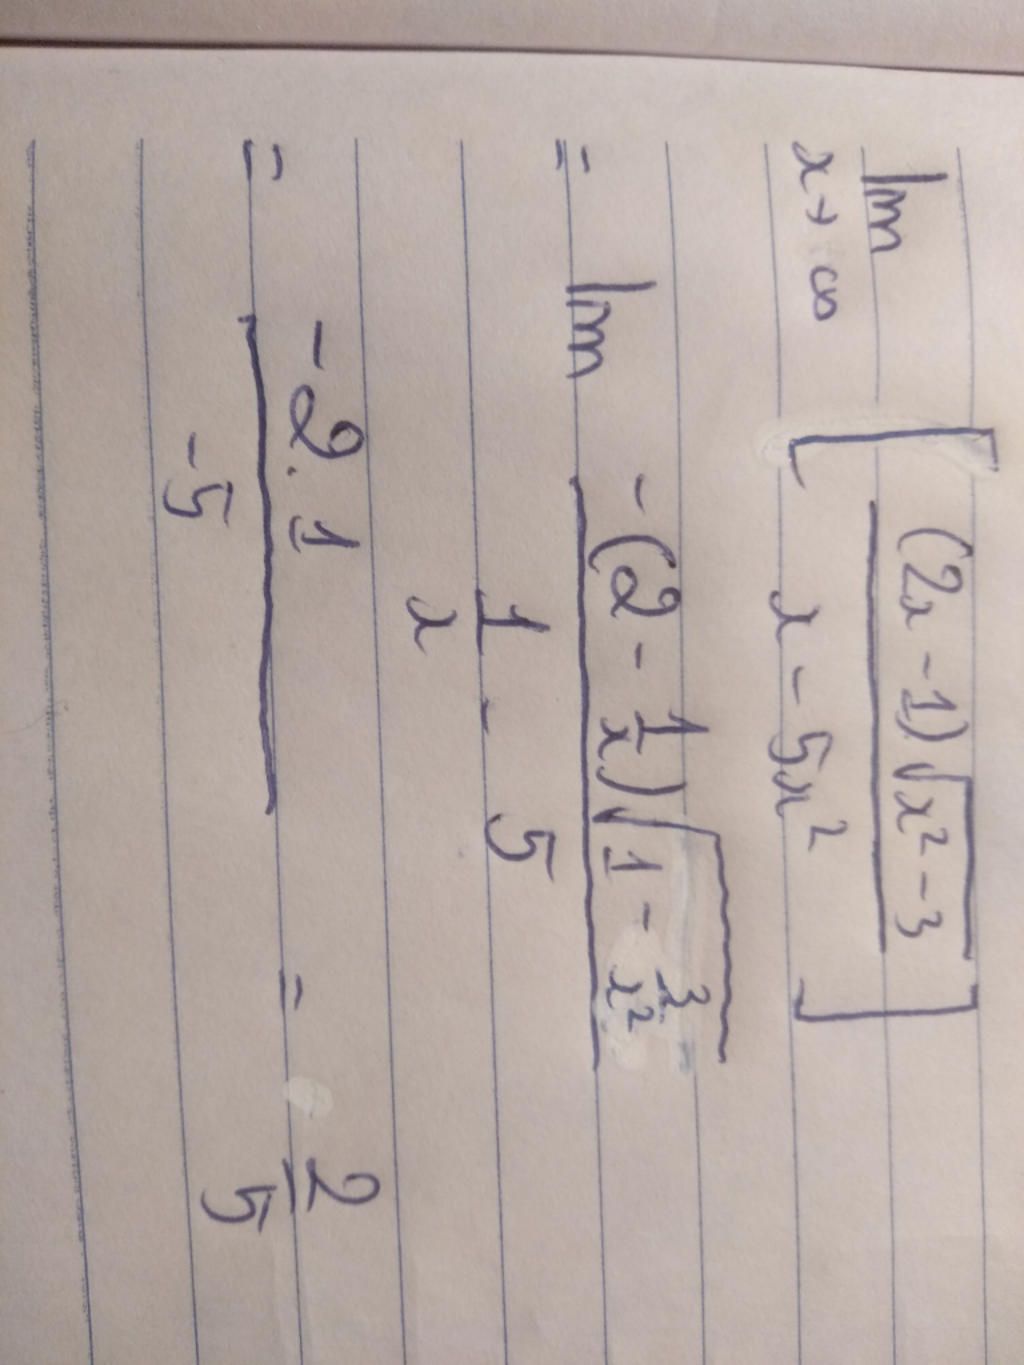 lim [ (2x - 1)√(x² - 3) / (x - 5x²) ]
x → ∞
= lim -(2 - 1/x)√(1 - 3/x²) / (1/x - 5)
= -2.1 / -5 = 2/5